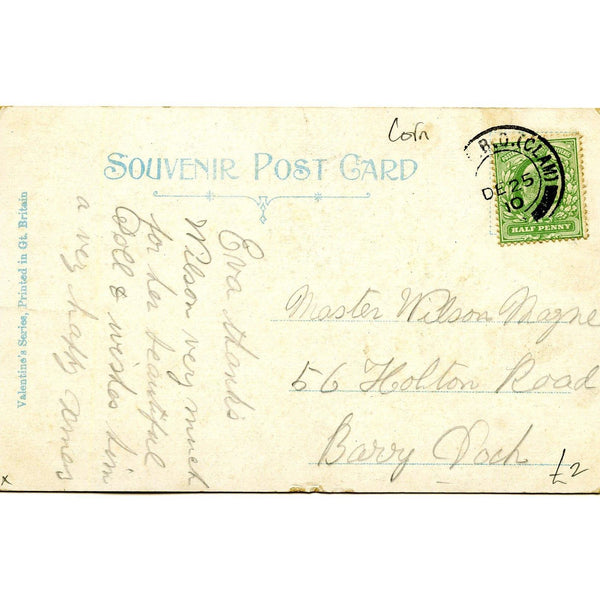 Corn
SOUVENIR POST CARD
R.O.(GLAM)
DE 25
10
HALF PENNY
Valentine's Series, Printed in Gt. Britain
Eva thanks
Wilson very much
for her beautiful
Doll & wishes him
a very happy Xmas
Master Wilson Magne
56 Holton Road
Barry Dock
£2
x